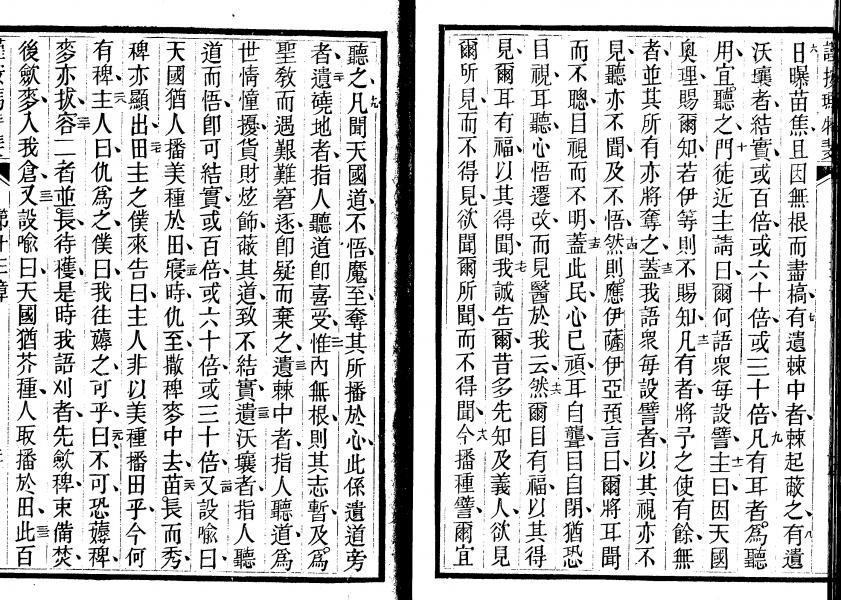 日曝苗焦且因無根而盡槁有遺棘中者棘起蔽之有遺
沃壤者結實或百倍或六十倍或三十倍凡有耳者爲聽
用宜聽之門徒近主請曰爾何語衆每設譬主曰因天國
奧理賜爾知若伊等則不賜知凡有者將予之使有餘無
者並其所有亦將奪之蓋我語衆每設譬者以其視亦不
見聽亦不聞及不悟然則應伊薩伊亞預言曰爾將耳聞
而不聰目視而不明蓋此民心已頑耳自聾目自閉猶恐
目視耳聽心悟遷改而見醫於我云然爾目有福以其得
見爾耳有福以其得聞我誠告爾昔多先知及義人欲見
爾所見而不得見欲聞爾所聞而不得聞今播種譬爾宜
聽之凡聞天國道不悟魔至奪其所播於心此係遺道旁
者遺磽地者指人聽道卽喜受惟內無根則其志暫及爲
聖敎而遇艱難窘逐卽疑而棄之遺棘中者指人聽道爲
世情憧擾貨財炫飾蔽其道致不結實遺沃壤者指人聽
道而悟卽可結實或百倍或六十倍或三十倍又設喻曰
天國猶人播美種於田寢時仇至撒稗麥中去苗長而秀
稗亦顯出田主之僕來告曰主人非以美種播田乎今何
有稗主人曰仇爲之僕曰我往薅之可乎曰不可恐薅稗
麥亦拔容二者並長待穫是時我語刈者先歛稗束備焚
後歛麥入我倉又設喻曰天國猶芥種人取播於田此百
第十三章